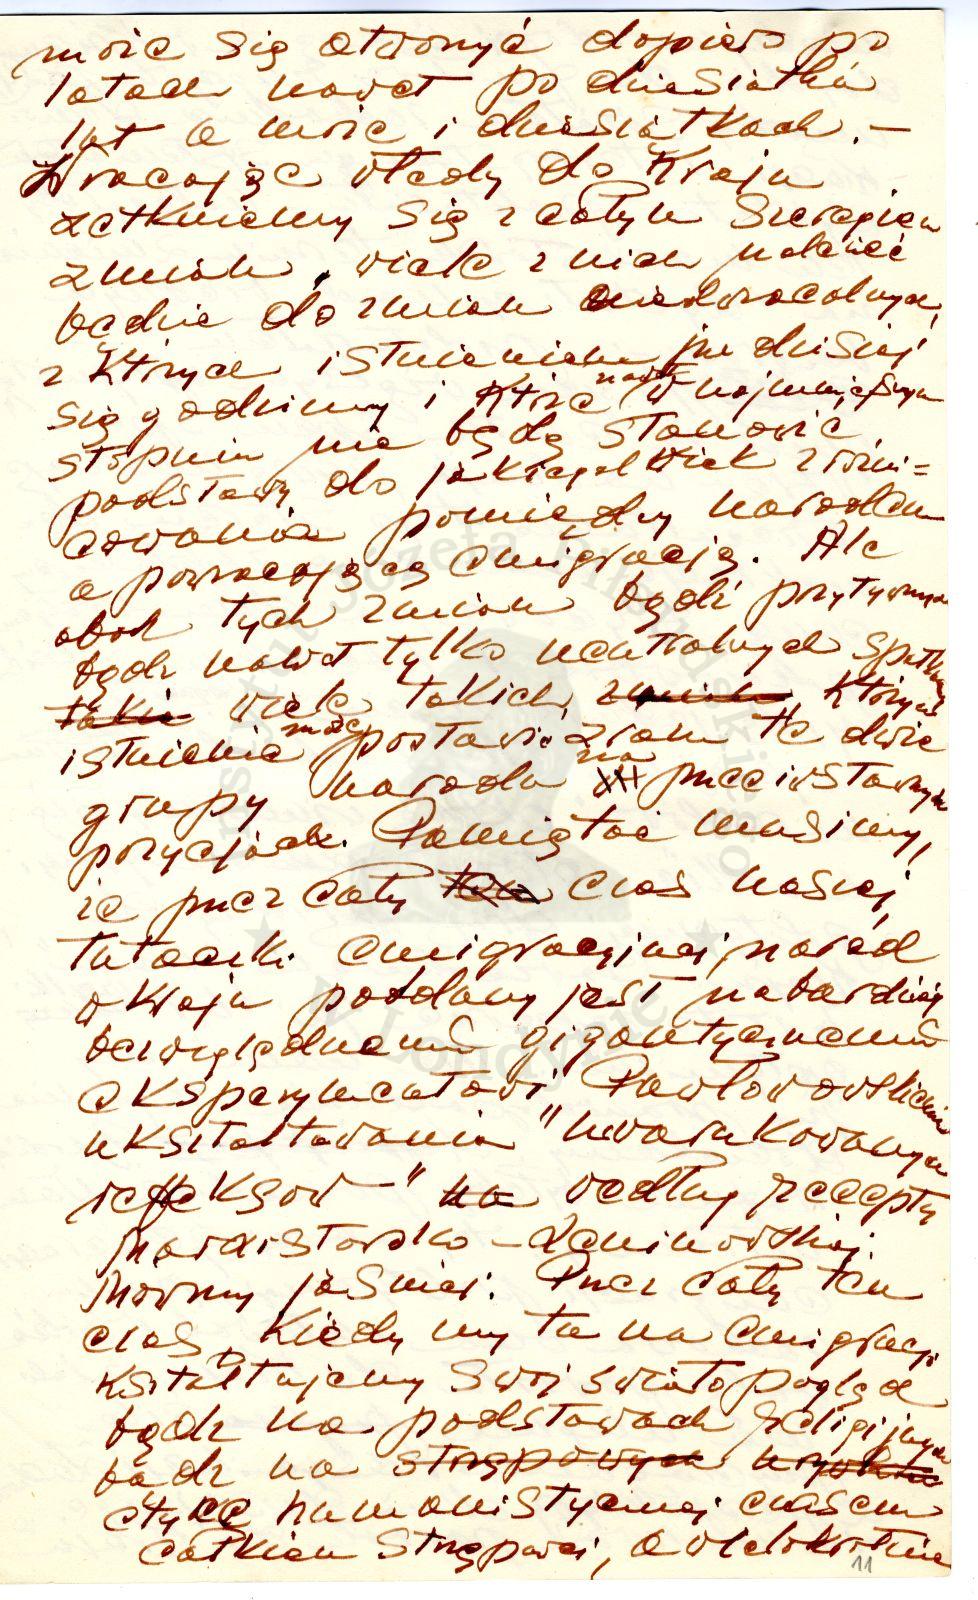 może się otworzyć dopiero po
latach nawet po dziesiątku
lat a może i dziesiątkach. —
Wracając wtedy do Kraju
zetkniemy się z całym szeregiem
zmian, wiele z nich należeć
będzie do zmian nieodwracalnych,
z których istnieniem już dzisiaj
się godzimy i które nawet w najmniejszym
stopniu nie będą stanowić
podstawy do jakiegokolwiek różni=
cowania pomiędzy narodem
a powracającą emigracją. Ale
obok tych zmian bądź pozytywnych
bądź nawet tylko neutralnych spotkamy
takie wiele takich, zmian których
istnienie może postawić zrazu te dwie
grupy narodu na przeciwstawnych
pozycjach. Pamiętać musimy,
że przez cały ten czas naszej
tułaczki emigracyjnej, naród
w Kraju poddany jest nabardziej
bezwzględnemu gigantycznemu
eksperymentowi Pawłowowskiemu
ukształtowania "uwarunkowanych
refleksów —" na według recepty
Marxistowsko – Leninowskiej.
Mówmy jaśniej: Przez cały ten
czas, kiedy my tu na emigracji
kształtujemy swój światopogląd
bądź na podstawach religijnych
bądź na strzępowych
etyce humanistycznej czasem
całkiem strzępowej, a wielokrotnie
11
Instytut Józefa Piłsudskiego
w Londynie